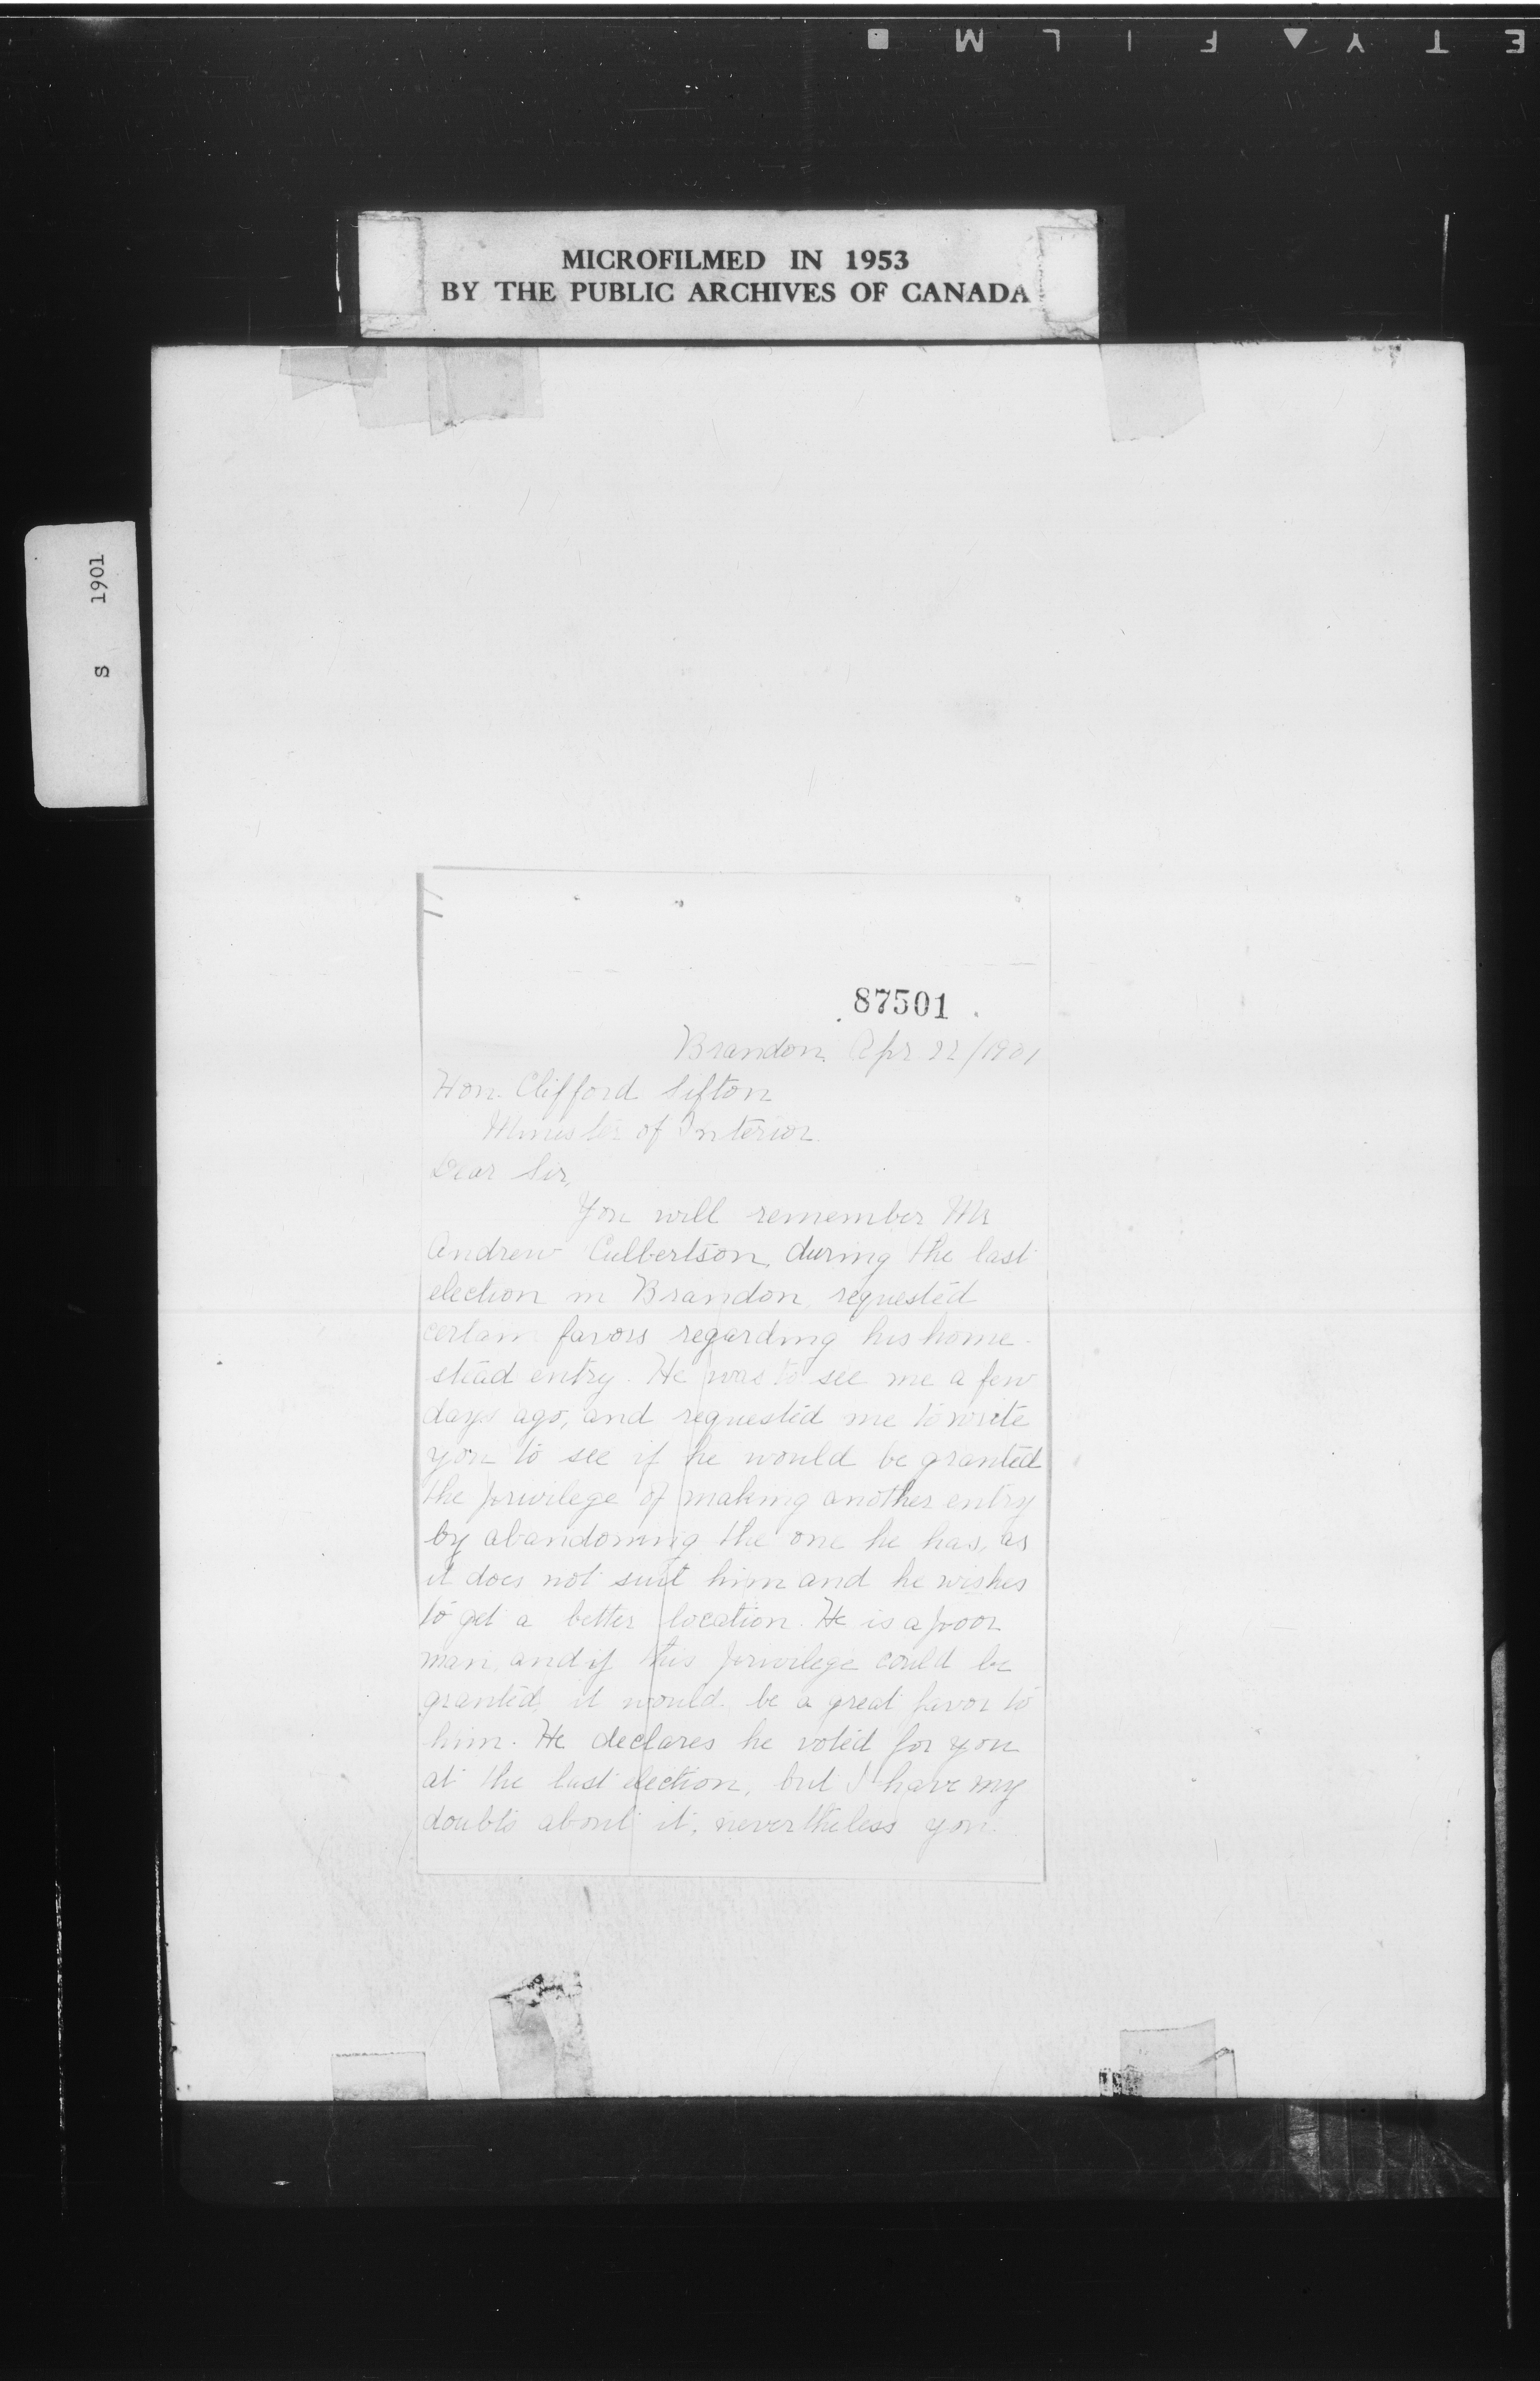 E T Y ▲ F I L M ■
MICROFILMED IN 1953
BY THE PUBLIC ARCHIVES OF CANADA
S 1901
87501
Brandon, Apr 22/1901
Hon. Clifford Sifton
Minister of Interior.
Dear Sir,
You will remember Mr
Andrew Culbertson, during the last
election in Brandon, requested
certain favors regarding his home-
stead entry. He was to see me a few
days ago, and requested me to write
you to see if he would be granted
the privilege of making another entry
by abandoning the one he has, as
it does not suit him and he wishes
to get a better location. He is a poor
man, and if this privilege could be
granted, it would be a great favor to
him. He declares he voted for you
at the last election, but I have my
doubts about it, nevertheless you